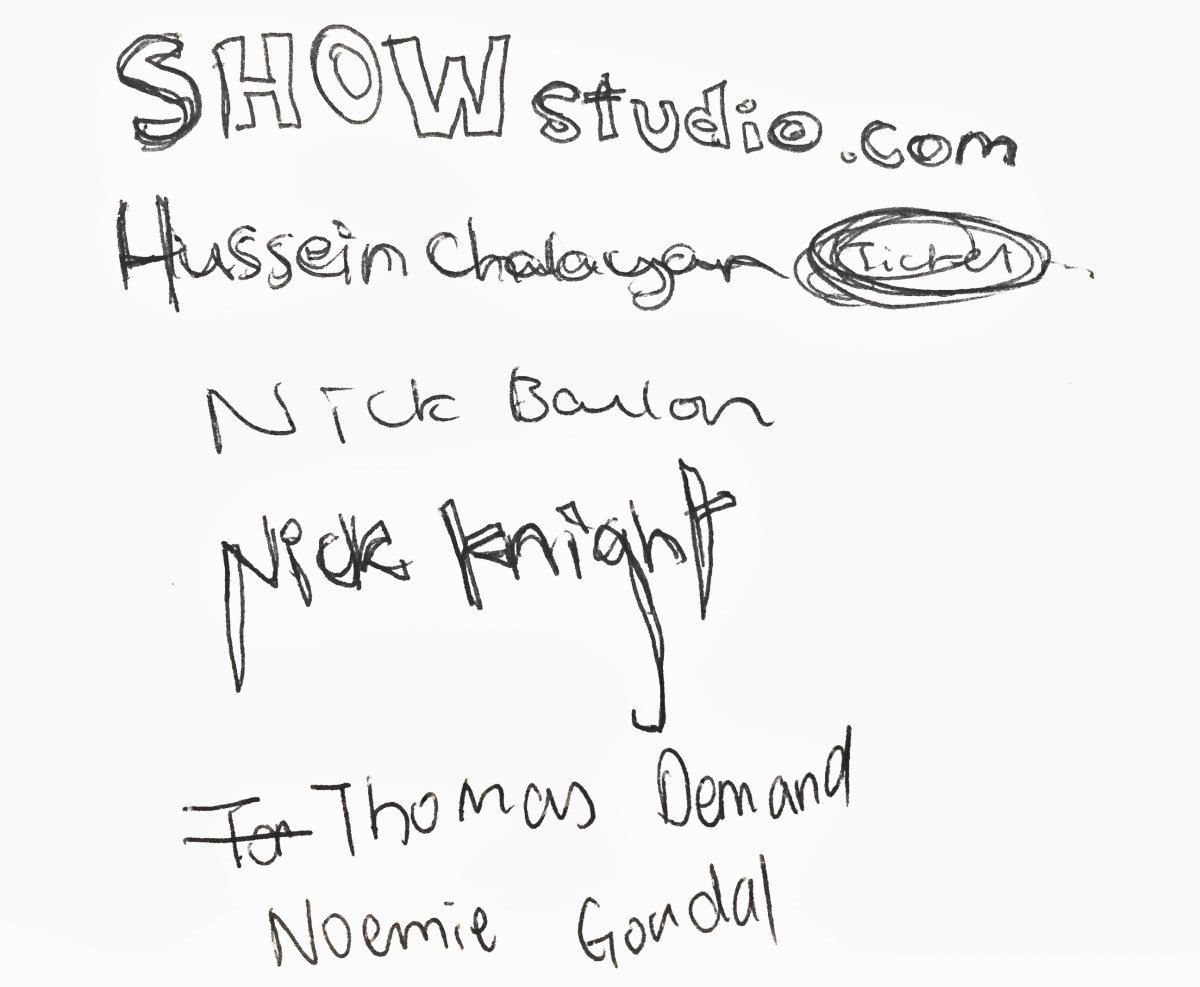 SHOWstudio.com
Hussein Chalayan Ticket
Nick Barlon
Nick Knight
Ton Thomas Demand
Noemie Goudal